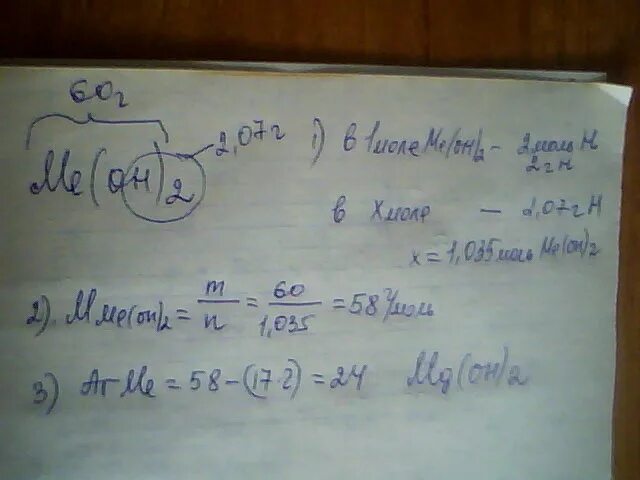 60г
Me(OH)2
2,07г
1) в 1 моле Me(OH)2 – 2 моль H
2 г H
в X моле – 2,07г H
x = 1,035 моль Me(OH)2
2). M Me(OH)2 = m/n = 60/1,035 = 58 г/моль
3) Ar Me = 58 – (17·2) = 24 Mg(OH)2